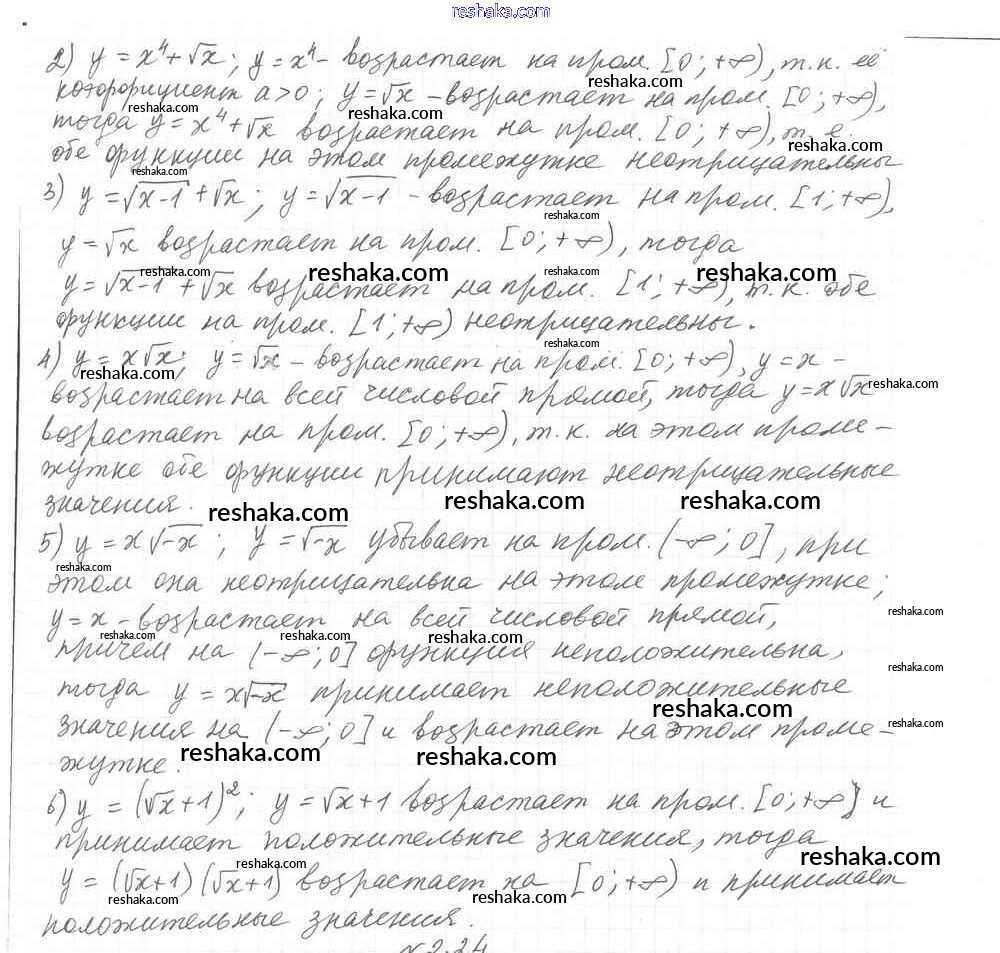 reshaka.com
2) y = x⁴ + √x; y = x⁴ - возрастает на пром. [0; +∞), т.к. её
reshaka.com
коэффициент a > 0; y = √x - возрастает на пром. [0; +∞),
reshaka.com reshaka.com
тогда y = x⁴ + √x возрастает на пром. [0; +∞), т.е.
reshaka.com
обе функции на этом промежутке неотрицательны
reshaka.com
3) y = √(x-1) + √x; y = √(x-1) - возрастает на пром. [1; +∞),
reshaka.com
y = √x возрастает на пром. [0; +∞), тогда
reshaka.com reshaka.com reshaka.com reshaka.com
y = √(x-1) + √x возрастает на пром. [1; +∞), т.к. обе
функции на пром. [1; +∞) неотрицательны.
reshaka.com
4) y = x√x; y = √x - возрастает на пром. [0; +∞), y = x -
reshaka.com reshaka.com
возрастает на всей числовой прямой, тогда y = x√x
возрастает на пром. [0; +∞), т.к. на этом проме-
жутке обе функции принимают неотрицательные
значения.
reshaka.com reshaka.com reshaka.com
5) y = x√(-x); y = √(-x) убывает на пром. (-∞; 0], при
reshaka.com
этом она неотрицательна на этом промежутке;
reshaka.com
y = x - возрастает на всей числовой прямой,
reshaka.com reshaka.com reshaka.com
причем на (-∞; 0] функция неположительна,
reshaka.com
тогда y = x√(-x) принимает неположительные
reshaka.com reshaka.com
значения на (-∞; 0] и возрастает на этом проме-
reshaka.com reshaka.com
жутке.
6) y = (√x + 1)²; y = √x + 1 возрастает на пром. [0; +∞) и
принимает положительные значения, тогда
reshaka.com reshaka.com
y = (√x + 1)(√x + 1) возрастает на [0; +∞) и принимает
reshaka.com reshaka.com
положительные значения.
№2.24